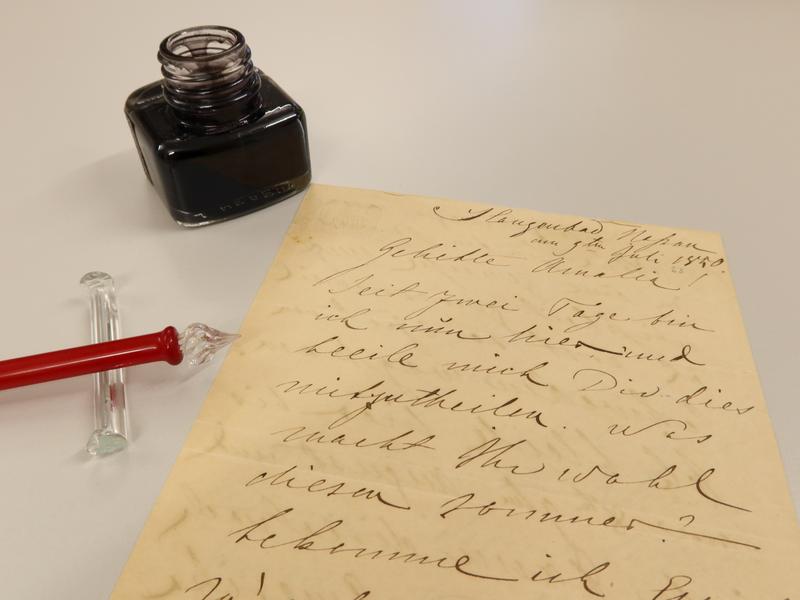 Slangenbad Nassau
am 9ten Juli 18
Geliebte Amalia!
Seit zwei Tage bin
ich nun hier und
beeile mich Dir dies
mitzutheilen. Was
macht Ihr wohl
diesen sommer?
bekomme ich